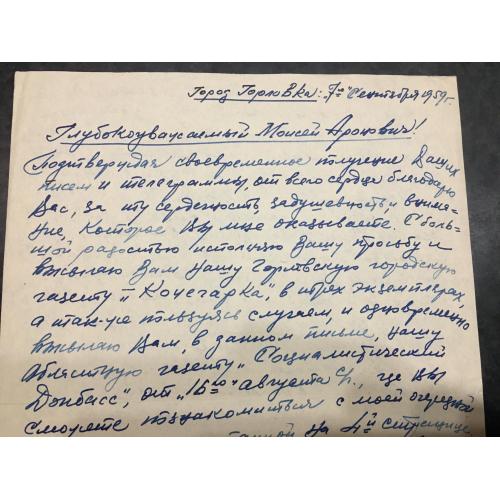 Город Горловка: „7го" Сентября 1959 г.
Глубокоуважаемый Моисей Аронович!
Подтверждая своевременное получение Ваших
писем и телеграммы, от всего сердца благодарю
Вас, за эту сердечность, задушевность и внима-
ние, которое Вы мне оказываете. С боль-
шой радостью исполняю Вашу просьбу и
высылаю Вам нашу Горловскую городскую
газету „Кочегарка", в трёх экземплярах,
а так-же пользуясь случаем, и одновременно
высылаю Вам, в данном письме, нашу
областную газету „Социалистический
Донбасс", от „16го" августа с/г., где Вы
сможете познакомиться с моей очередной
на 4й странице